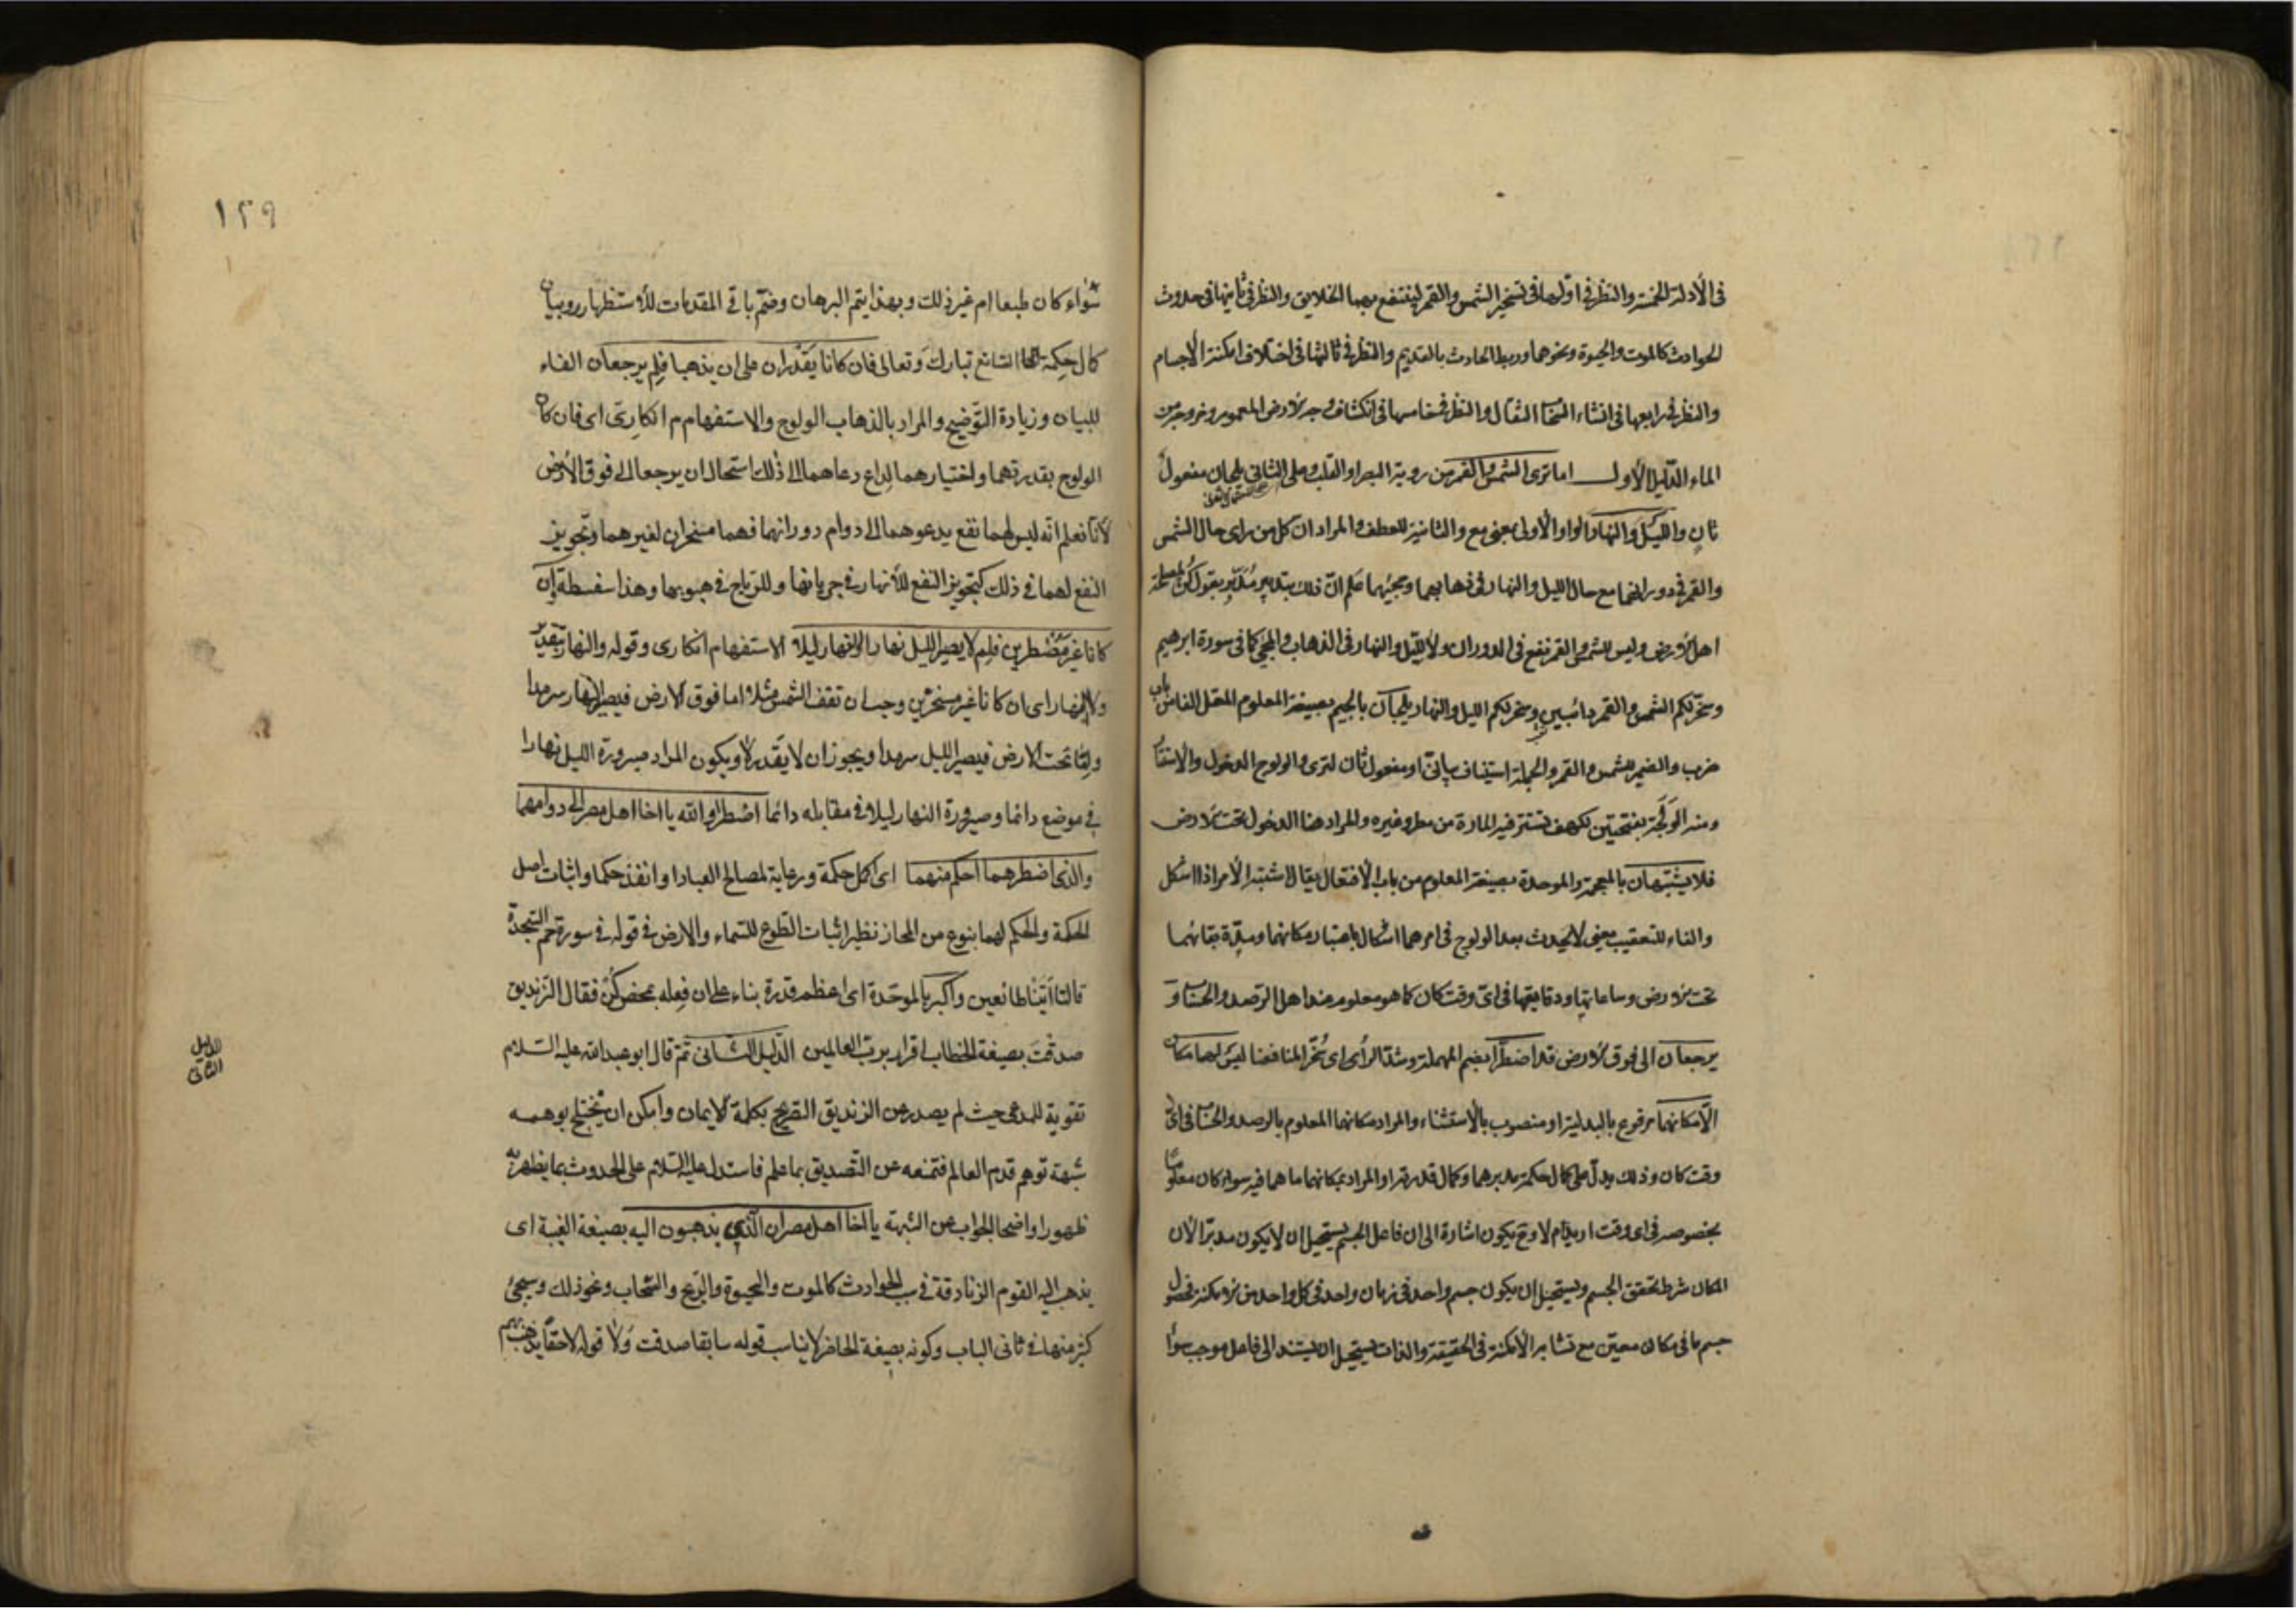 فى الأدلة الخمسة والنظر فى اولها فى تسخير الشمس والقمر لينتفع بهما الخلايق والنظر فى ثانيها فى حدوث
الحوادث كالموت والحيوة ونحوهما وربط الحادث بالقديم والنظر فى ثالثها فى اختلاف امكنة الأجسام
والنظر فى رابعها فى انشاء السحاب الثقال والنظر فى خامسها فى انكشاف وجه الارض المعمور وخروجه من
الماء الدّليل الأول اما ترى الشمس والقمر من روية البصر او القلب وعلى الثانى يلجان مفعول
ثان والليل والنهار الواو الأولى بمعنى مع والثانية للعطف والمراد ان كل من راى حال الشمس
والقمر فى دورانهما مع حال الليل والنهار فى ذهابهما ومجيئهما علم انّ ذلك بتدبير مُدَبِّر يقول كُن لمصلحة
اهل الارض وليس للشمس والقمر نفع فى الدوران ولا لليّل والنهار فى الذهاب والمجئ كما فى سورة ابرهيم
وسخّر لكم الشمس والقمر دائبين وسخر لكم الليل والنهار يلجان بالجيم بصيغة المعلوم المعتل الفاء من باب
ضرب والضمير للشمس والقمر والجملة استيناف بيانىّ او مفعول ثان لترى والولوج الدخول والاستتار
ومنه الوَلَجَة بفتحتين كهف تستتر فيه المارة من مطر وغيره والمراد هنا الدخول تحت الارض
فلا يشتبهان بالمعجمة والموحدة بصيغة المعلوم من باب الأفتعال يقال اشتبه الأمر اذا اشكل
والفاء للتعقيب بمعنى لا يحدث بعد الولوج فى امرهما اشكال باعتبار مكانهما ومدّة بقائهما
تحت الارض وساعاتها ودقايقها فى اىّ وقت كان كما هو معلوم عند اهل الرّصد والحساب و
يرجعان الى فوق الارض قد اضطرّا بضم المهملة وشدّ الرأى اى سُخّرا لمنافعنا ليس لهما مكان
الّا مكانهما مرفوع بالبدلية او منصوب بالأستثناء والمراد مكانهما المعلوم بالرصد والحساب فى اىّ
وقت كان وذلك يدلّ على كمال حكمة مدبرهما وكمال قدرته او المراد بمكانهما ما هما فيه سواء كان معلوما
بخصوصه فى اى وقت اريد ام لا وح يكون اشارة الى ان فاعل الجسم يستحيل ان لا يكون مدبّرا لأن
المكان شرط تحقق الجسم ويستحيل ان يكون جسم واحد فى زمان واحد فى كل واحد من الامكنة فحصول
جسم ما فى مكان معيّن مع تشابه الأمكنة فى الحقيقة والذات يستحيل ان يستند الى فاعل موجب سواء
١٢٩
سَواء كان طبعا ام غير ذلك وبهذا يتم البرهان وضمّ باقى المقدمات للأستظهار وبيان
كمال حكمة الصّانع تبارك وتعالى فان كانا يقدران على ان يذهبا فلم يرجعان الفاء
للبيان وزيادة التّوضيح والمراد بالذهاب الولوج والاستفهام انكارىّ اى فان كان
الولوج بقدرتهما واختيارهما لداع دعاهما الى ذلك استحال ان يرجعا الى فوق الأرض
لأنّا نعلم انّه ليس لهما نفع يدعوهما الى دوام دورانهما فهما مسخران لغيرهما وتجويز
النفع لهما فى ذلك كتجويز النفع للأنهار فى جريانها وللرّياح فى هبوبها وهذا سفسطة إن
كانا غير مُضطرين فلم لا يصير الليل نهارا والنهار ليلا الاستفهام انكارى وقوله والنهار بتقدير
ولا النهار اى ان كانا غير مسخرين وجب ان تقف الشمس مثلا اما فوق الارض فيصير النهار سرمدا
وامّا تحت الارض فيصير الليل سرمدا ويجوز ان لا يقدر لا ويكون المراد صيرورة الليل نهارا
فى موضع دائما وصيرورة النهار ليلا فى مقابله دائما اضطرّا والله يا اخا اهل مصر الى دوامهما
والذى اضطرهما احكم منهما اى اكمل حكمة ورعاية لمصالح العباد او انفذ حكما واثبات اصل
الحكمة والحكم لهما بنوع من المجاز نظير اثبات الطّوع للسّماء والارض فى قوله فى سورة حم السّجدة
قالتا أتينا طائعين واكبر بالموحّدة اى اعظم قدرة بناء على ان فعله بمحض كُن فقال الزّنديق
صدقتَ بصيغة الخطاب اقرار بربّ العالمين الدّليل الثّانى ثمّ قال ابو عبد الله عليه السّلام
الدليل الثانى
تقوية للمدعى حيث لم يصدر عن الزنديق التصريح بكلمة الايمان وامكن ان يختلج بوهمه
شبهة توهم قدم العالم فتمنعه عن التّصديق بما علم فاستدل عليه السّلام على الحدوث بما يظهر به
ظهورا واضحا الجواب عن الشّبهة يا اخا اهل مصر ان الّذى يذهبون اليه بصيغة الغيبة اى
يذهب اليه القوم الزنادقة فى سبب الحوادث كالموت والحيوة والرّيح والسّحاب ونحو ذلك وسيجئ
كثير منها فى ثانى الباب وكونه بصيغة الحاضر لا يناسب قوله سابقا صدقت ولا قوله لاحقا يذهب بهم